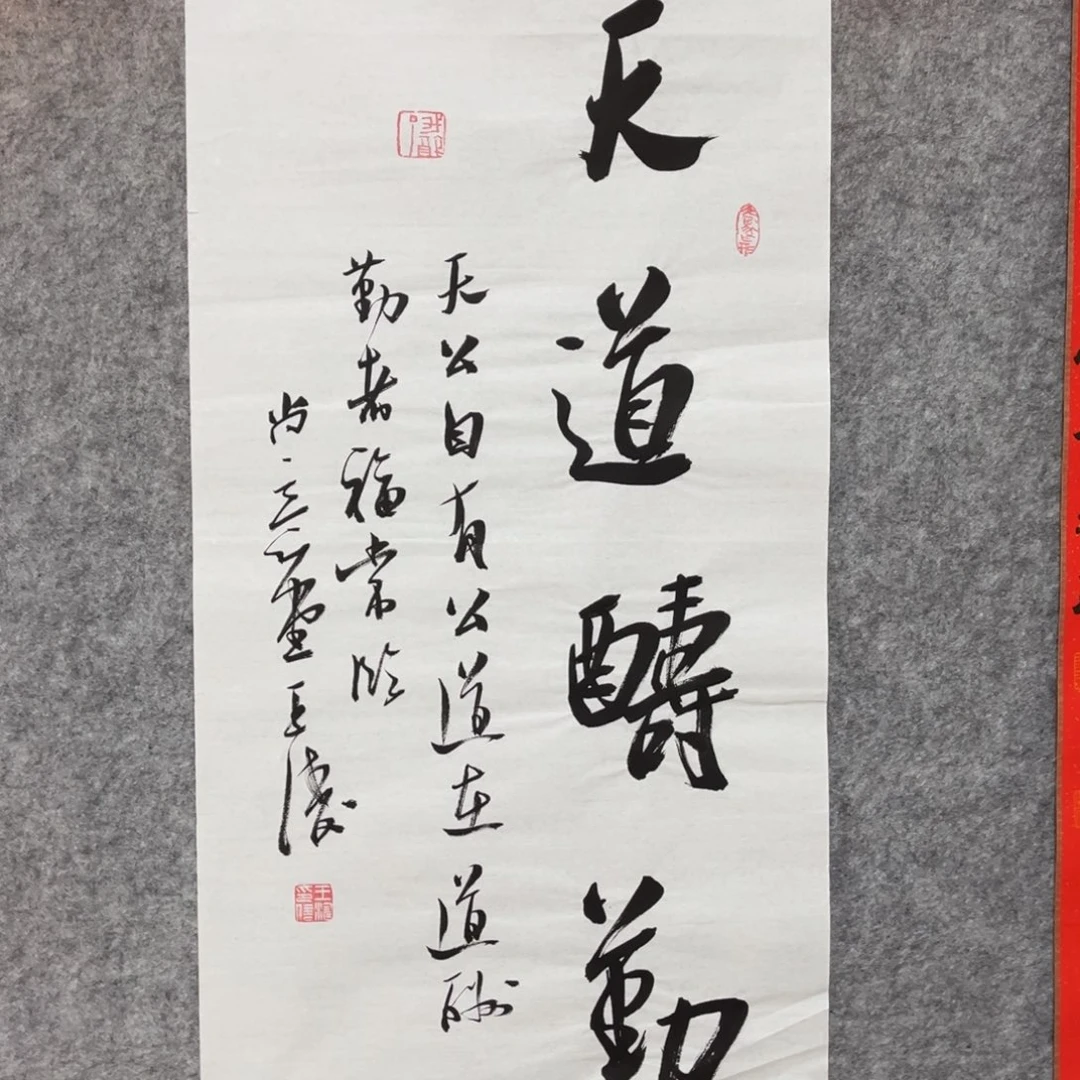 天道醻勤
天公自有公道在道酬
勤者福常临
尚一